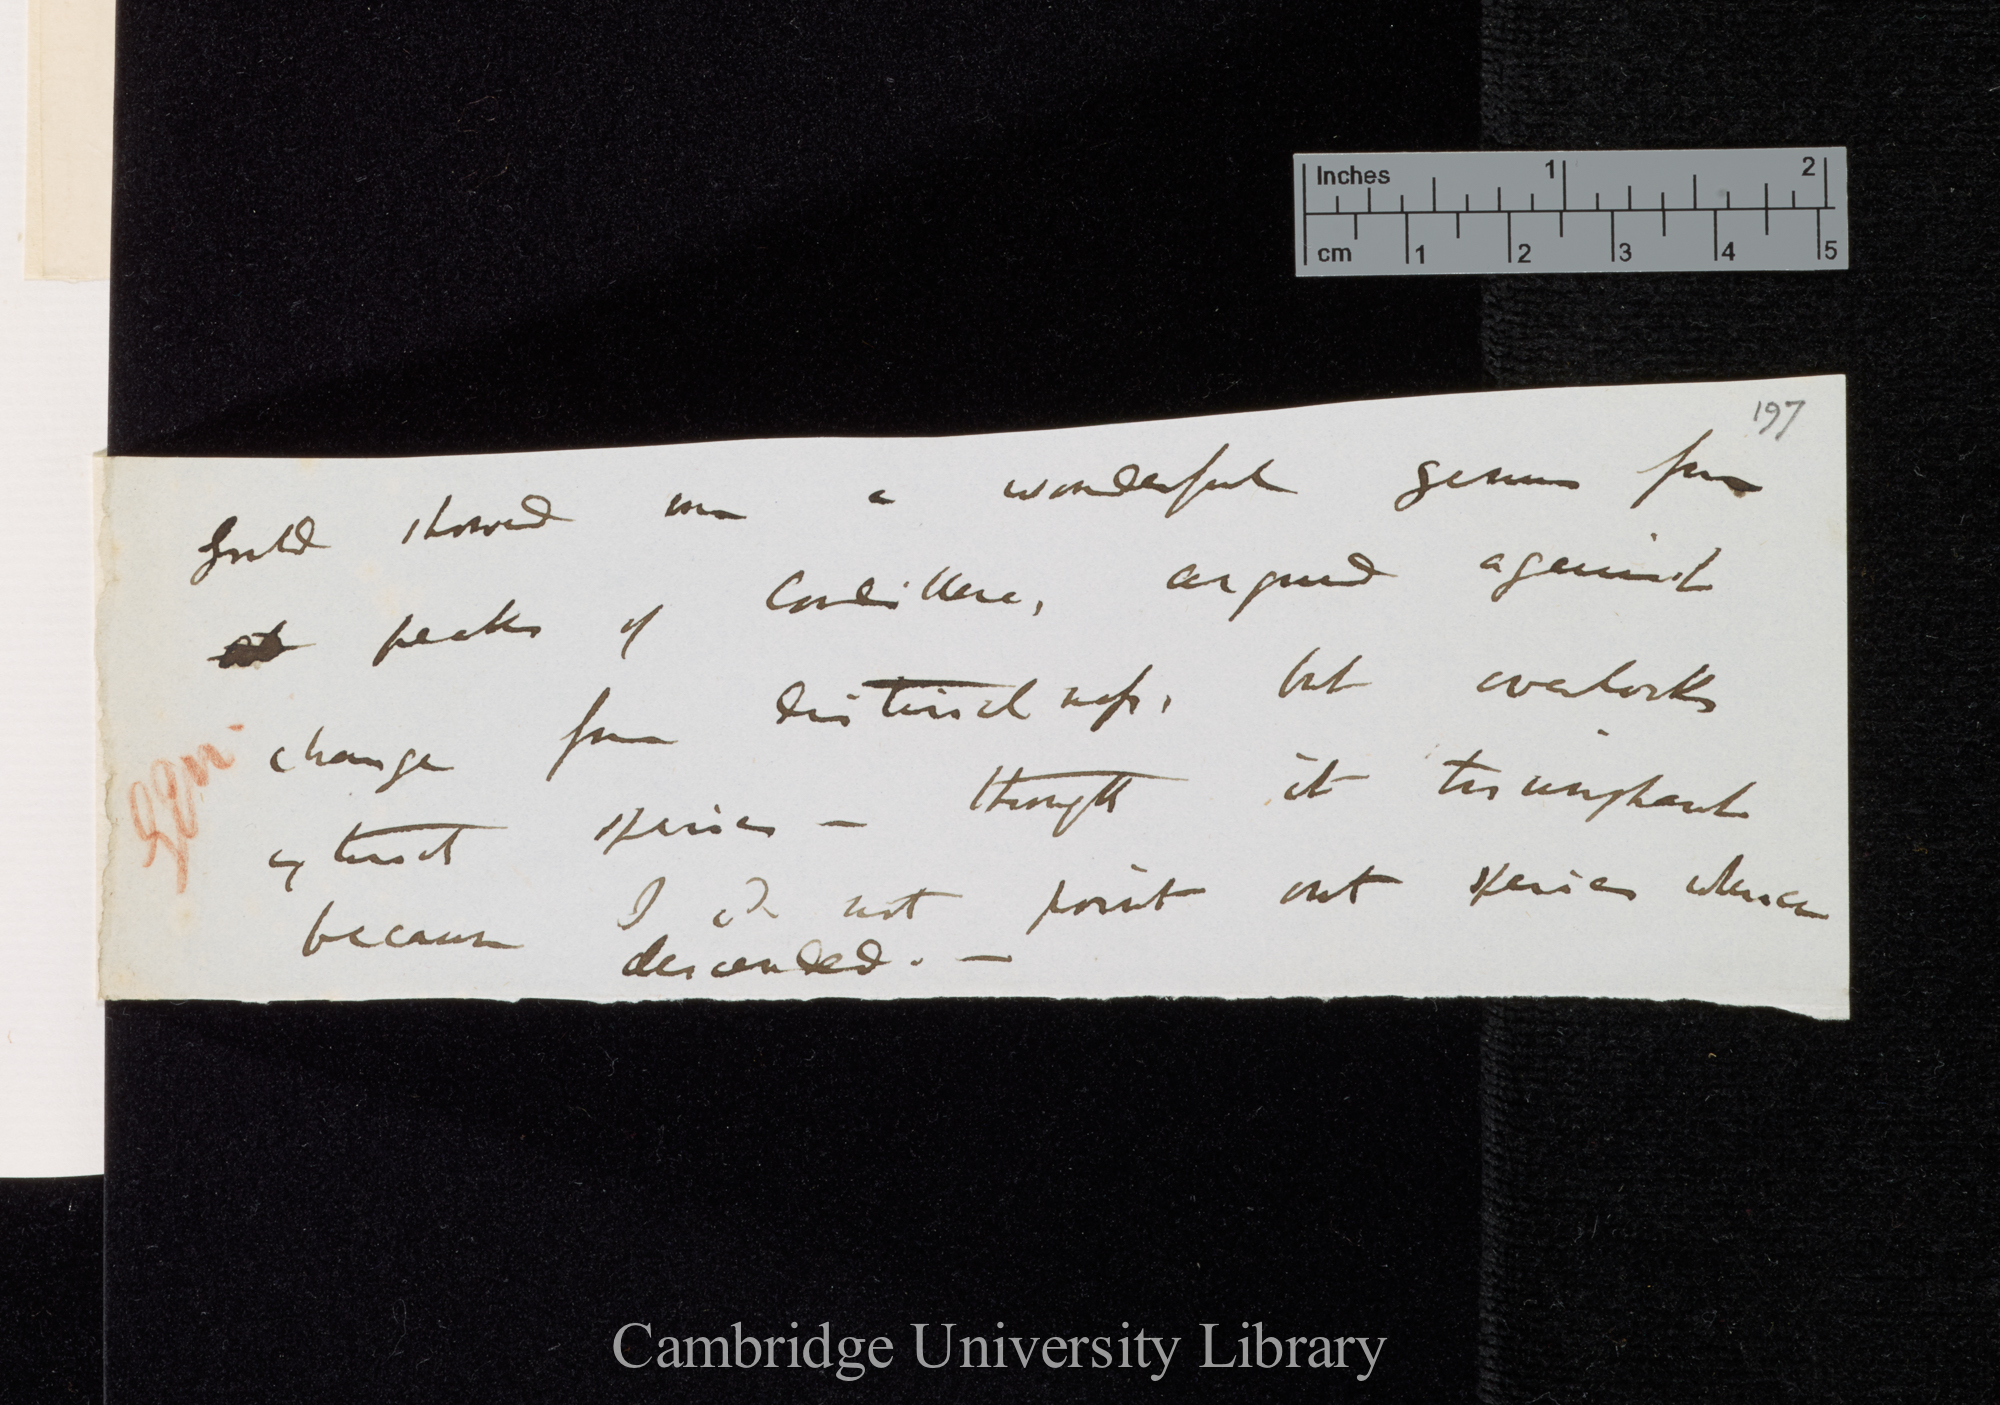 Inches 1 2
cm 1 2 3 4 5
197
Gould showed me a wonderful genus from
peaks of Cordillera, argued against
change from distinctness, but overlooks
extinct species — thought it triumphant
because I cd not point out species whence
descended. —
Cambridge University Library